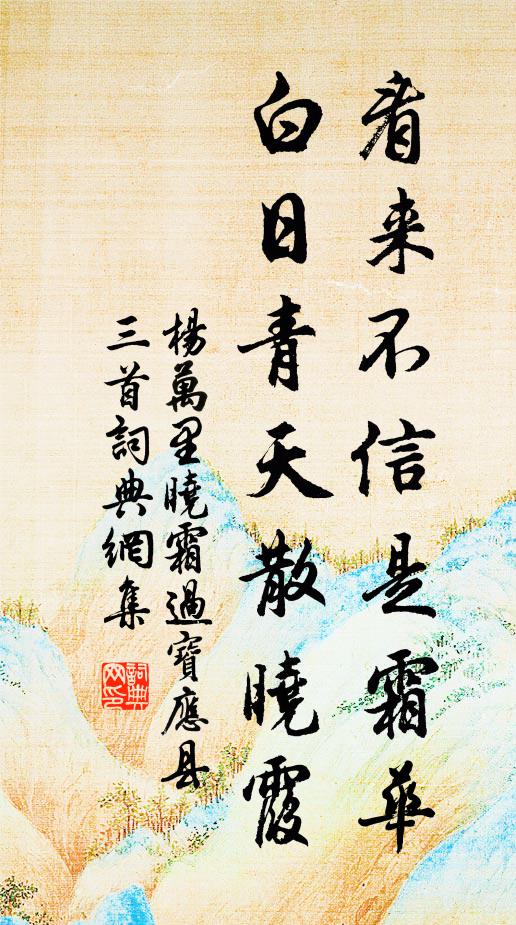 看来不信是霜華
白日青天散曉霞
楊萬里曉霜過寶應县
三首詞典網集
詞典网印